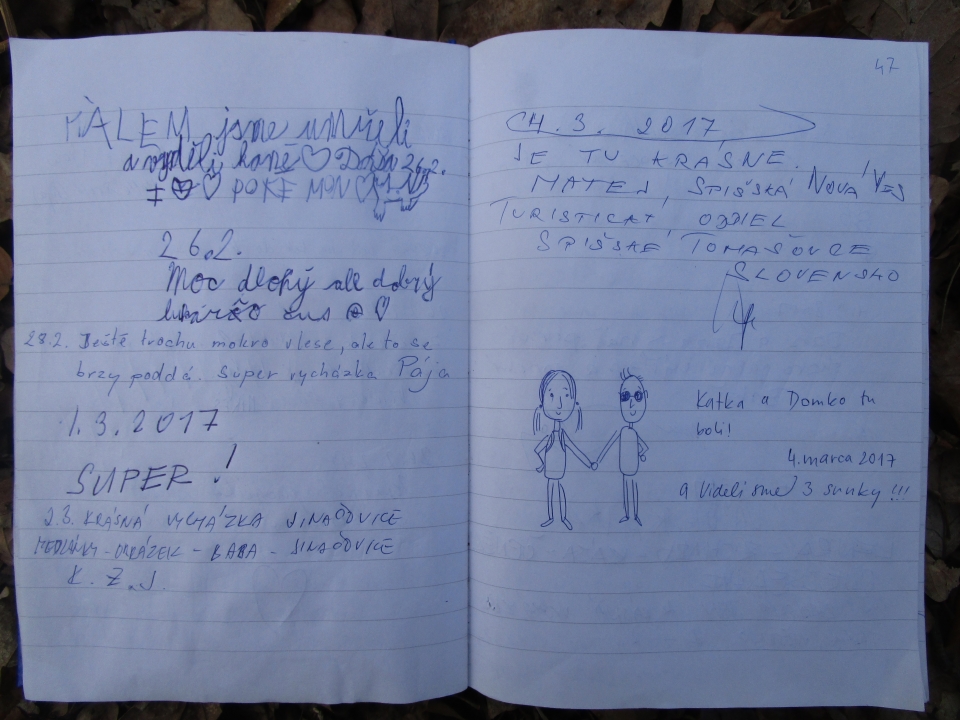 MÀLEM jsme umřeli
a vyděli koně ♡ Dne 26.2.
I ♡ POKEMON ♡
26.2.
Moc dlohý ale dobrý
28.2. Ještě trochu mokro v lese, ale to se
brzy poddá. Super vycházka Pája
1.3.2017
SUPER!
2.3. KRÁSNÁ VYCHÁZKA JINAČOVICE
MEDLÁNKY - MRÁZEK - BABA - JINAČOVICE
K. Z. J.
47
4.3. 2017
JE TU KRÁSNE.
MATEJ, SPIŠSKÁ NOVÁ VES
TURISTICKÝ ODDIEL
SPIŠSKÉ TOMAŠOVCE
SLOVENSKO
Katka a Domko tu
boli!
4. marca 2017
a videli sme 3 srnky !!!